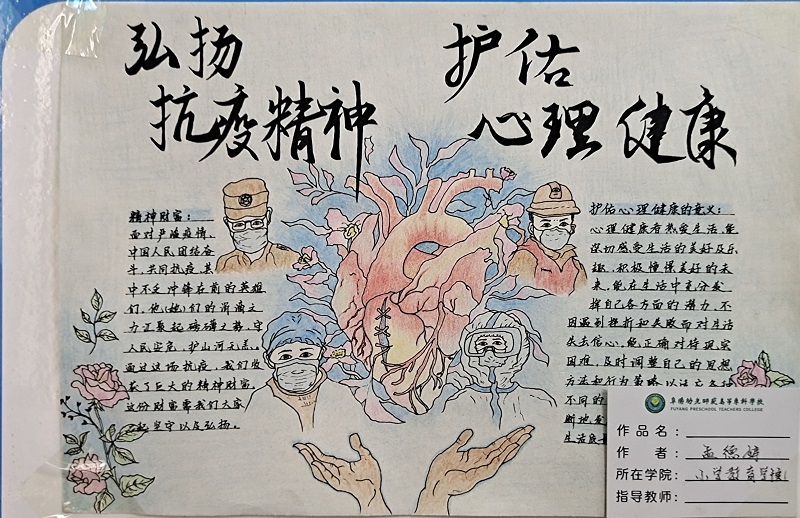 弘扬
抗疫精神
护佑
心理健康
精神财富：
面对严峻疫情，
中国人民团结奋
斗，共同抗疫，其
中不乏冲锋在前的英雄
们，他(她)们的涓滴之
力汇聚起磅礴之势，守
人民安危，护山河无恙。
通过这场抗疫，我们收
获了巨大的精神财富，
这份财富需我们大家
一起坚守以及弘扬。
护佑心理健康的意义：
心理健康者热爱生活，能
深切感受生活的美好及乐
趣，积极憧憬美好的未
来，能在生活中充分发
挥自己各方面的潜力，不
因遇到挫折和失败而对生活
失去信心，能正确对待现实
困难，及时调整自己的思想
方法和行为策略以适应各种
不同的
断地
生活质量
阜阳幼儿师范高等专科学校
FUYANG PRESCHOOL TEACHERS COLLEGE
作品名：
作 者：孟德婷
所在学院：小学教育学院
指导教师：